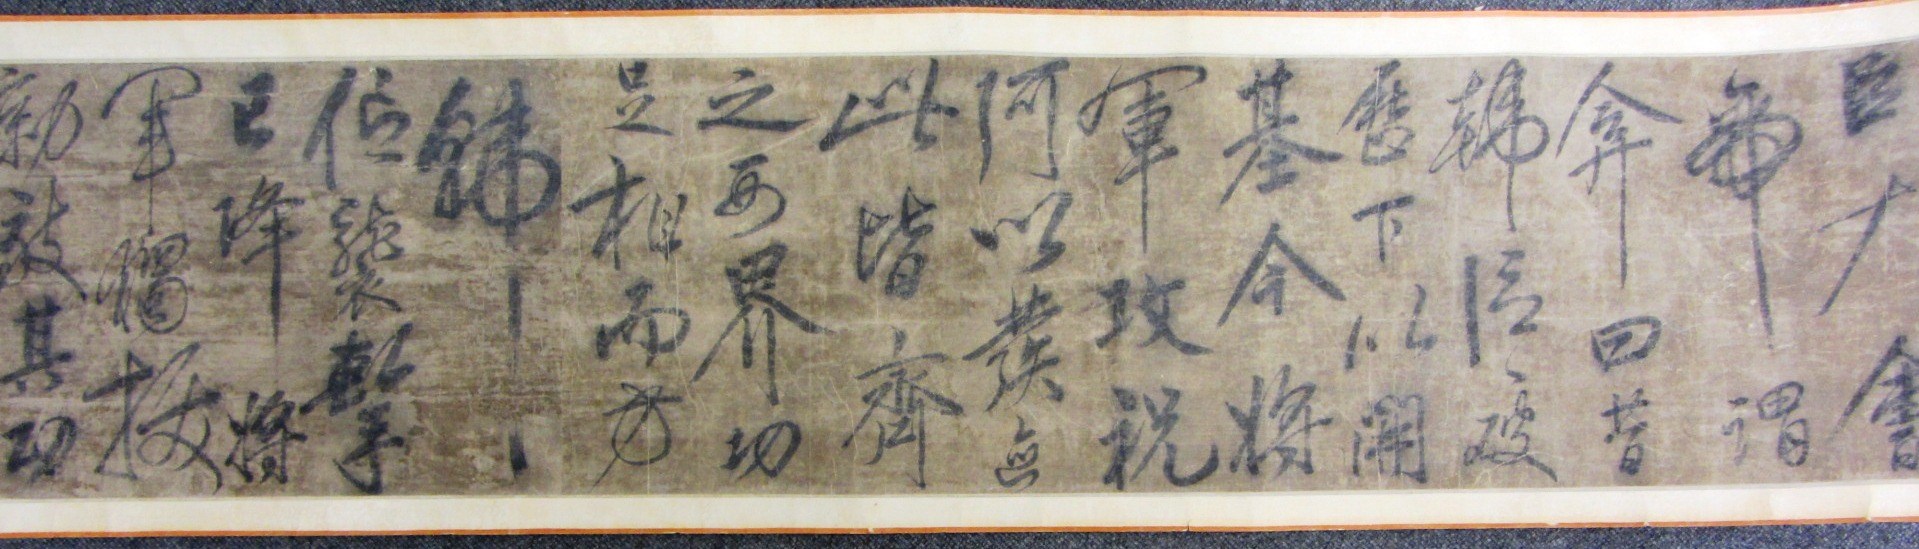 臣大會
帝謂
弇曰昔
韓信破
歷下以開
基今將
軍攻祝
阿以發迹
此皆齊
之西界功
足相而方
韓
信襲擊
已降將
軍獨拔
勍敵其功